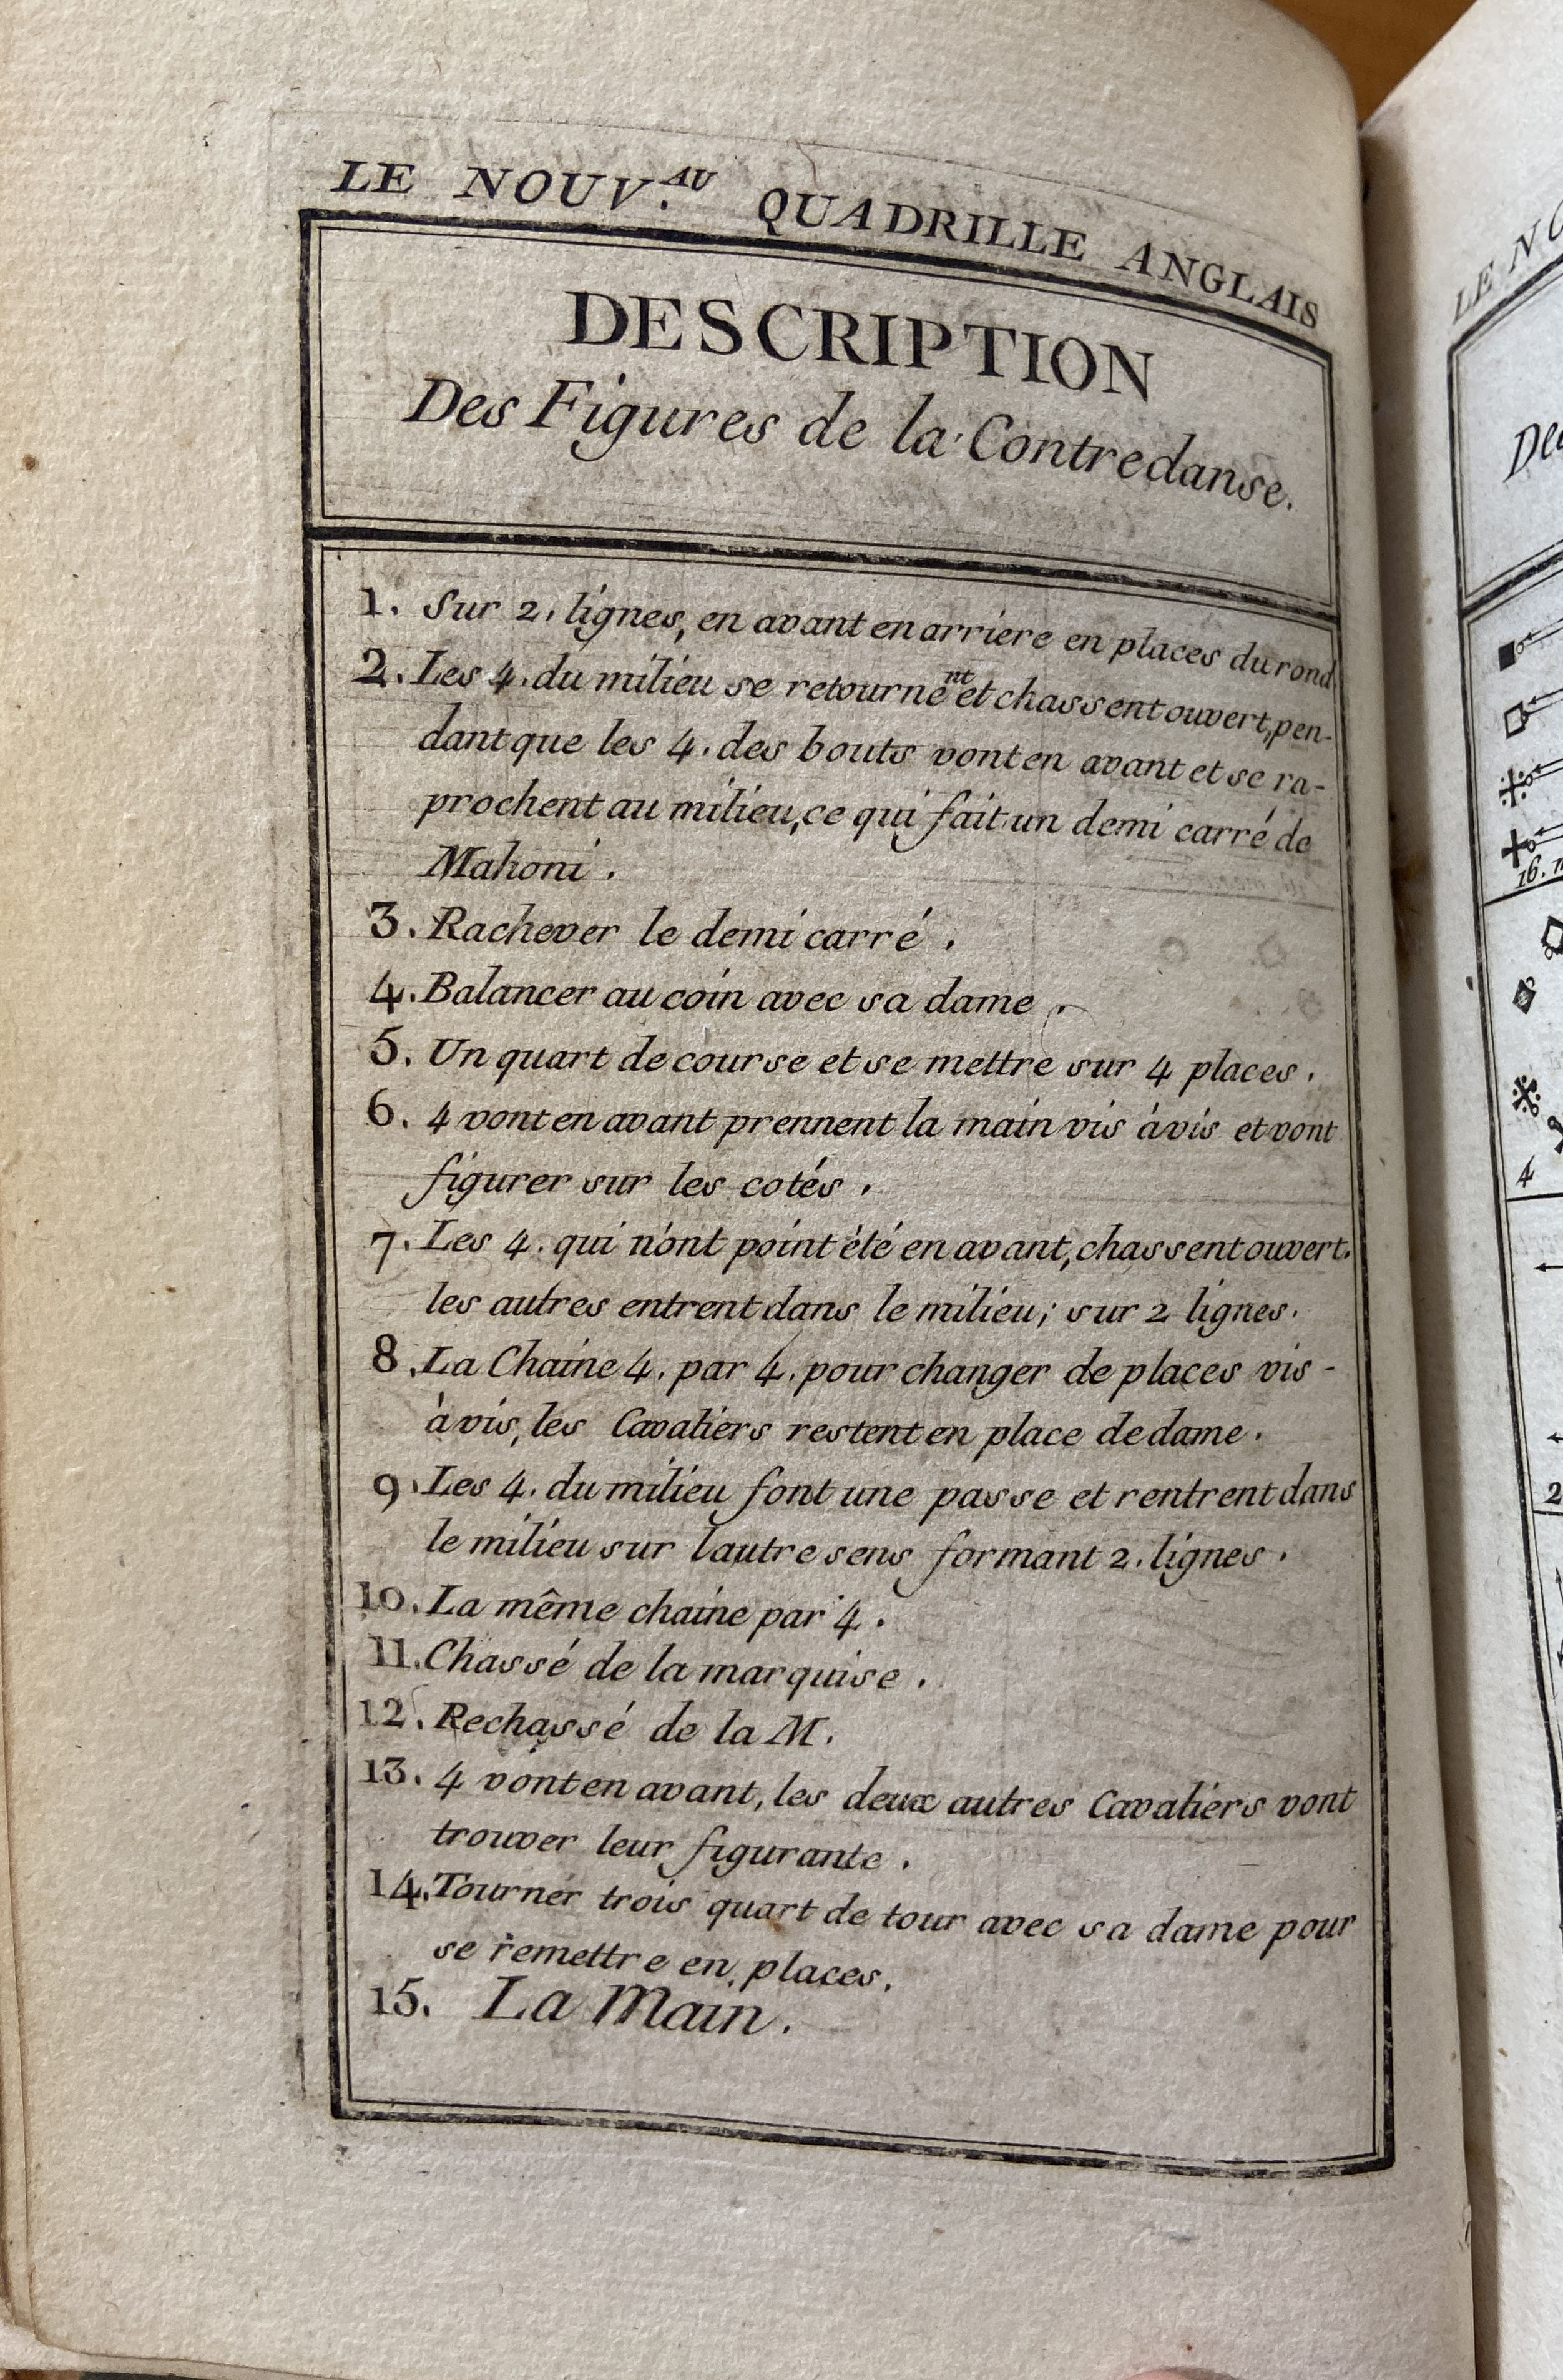 LE NOUV.AU QUADRILLE ANGLAIS
DESCRIPTION
Des Figures de la Contredanse.
1. Sur 2. lignes, en avant en arriere en places du rond.
2. Les 4. du milieu se retournent et chassent ouvert, pen-
dant que les 4. des bouts vont en avant et se ra-
prochent au milieu, ce qui fait un demi carré de
Mahoni.
3. Rachever le demi carré.
4. Balancer au coin avec sa dame.
5. Un quart de course et se mettre sur 4 places.
6. 4 vont en avant prennent la main vis àvis et vont
figurer sur les cotés.
7. Les 4. qui n'ont point été en avant, chassent ouvert.
les autres entrent dans le milieu; sur 2 lignes.
8. La Chaine 4. par 4. pour changer de places vis-
àvis, les Cavaliers restent en place de dame.
9. Les 4. du milieu font une passe et rentrent dans
le milieu sur lautre sens formant 2. lignes.
10. La même chaine par 4.
11. Chassé de la marquise.
12. Rechassé de la M.
13. 4 vont en avant, les deux autres Cavaliers vont
trouver leur figurante.
14. Tourner trois quart de tour avec sa dame pour
se remettre en places.
15. La Main.
LE NO
16.
4
2